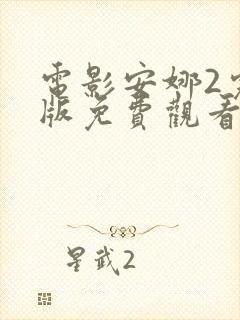 電影安娜2
版免費觀看
星武2